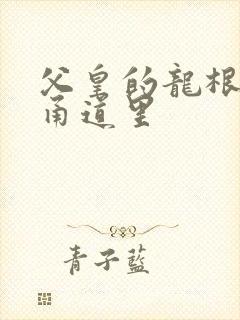 父皇的龍根
甬道里
青子藍